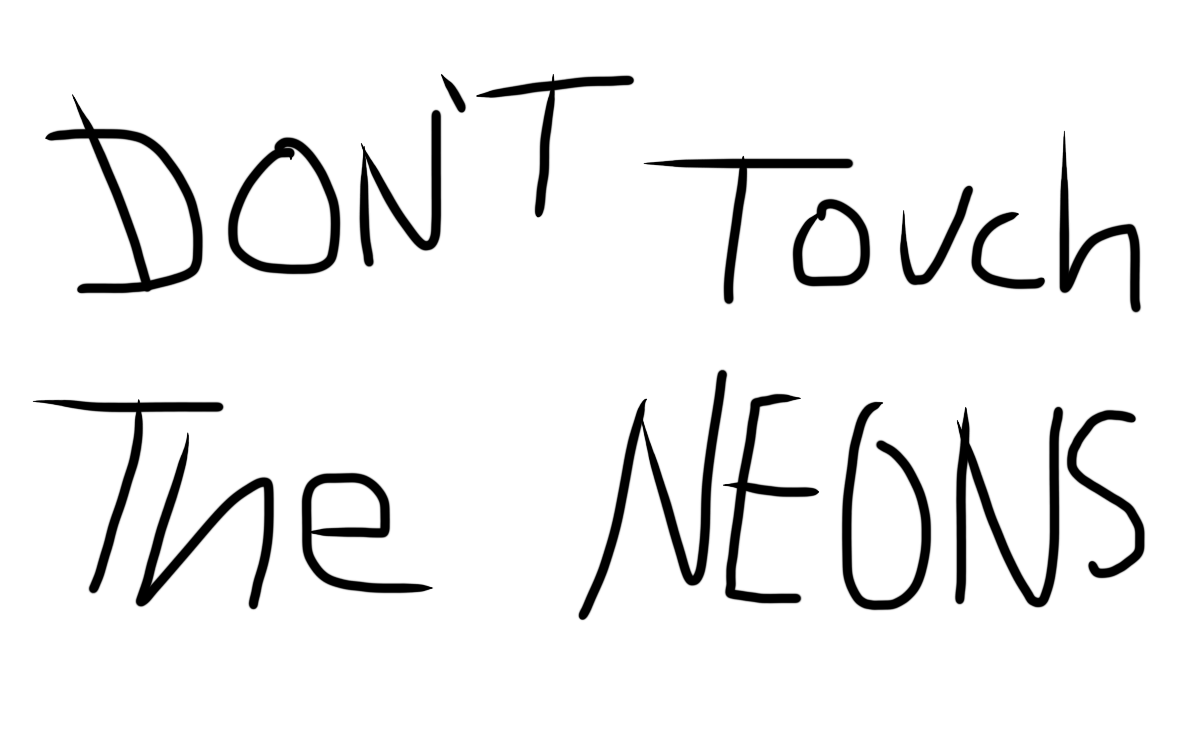 DON'T Touch
The NEONS